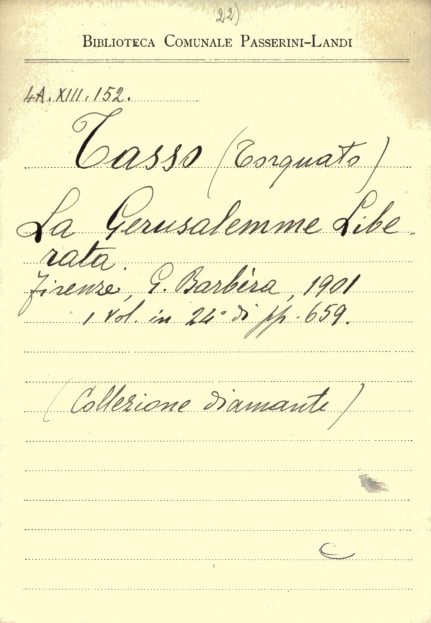 (22)
BIBLIOTECA COMUNALE PASSERINI-LANDI
4A.XIII.152.
Tasso (Torquato)
La Gerusalemme Libe-
rata.
Firenze, G. Barbèra, 1901
1 vol. in 24° di pp. 659.
(Collezione diamante)